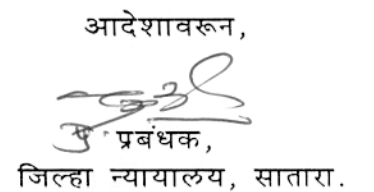 आदेशावरून,
प्रबंधक,
जिल्हा न्यायालय, सातारा.